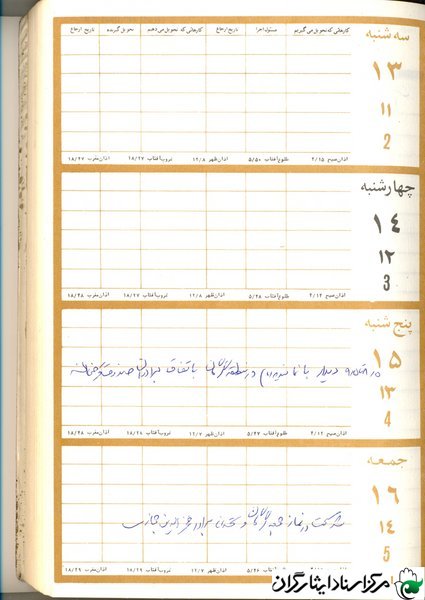 سه شنبه
کارهائی که تحویل می گیریم مسئول اجرا تاریخ ارجاع کارهائی که تحویل می دهیم تحویل گیرنده تاریخ ارجاع
۱۳
۱۱
2
اذان صبح ۴/۱۵ طلوع آفتاب ۵/۵۰ اذان ظهر ۱۲/۸ غروب آفتاب ۱۸/۲۷ اذان مغرب ۱۸/۴۷
چهارشنبه
۱۴
۱۲
3
اذان صبح ۴/۱۴ طلوع آفتاب ۵/۴۸ اذان ظهر ۱۲/۸ غروب آفتاب ۱۸/۲۷ اذان مغرب ۱۸/۴۸
پنج شنبه
۱۵
دیدار با در منطقه باتفاق برادران
۱۳
4
اذان صبح ۴/۱۲ طلوع آفتاب ۵/۴۷ اذان ظهر ۱۲/۷ غروب آفتاب ۱۸/۲۸ اذان مغرب ۱۸/۴۸
جمعه
۱۶
شرکت در نماز جمعه و سخنرانی برادر فخرالدین حجازی
۱۴
5
طلوع آفتاب ۵/۴۶ اذان ظهر ۱۲/۷ غروب آفتاب ۱۸/۲۹ اذان مغرب ۱۸/۴۹
مرکز اسناد ایثارگران